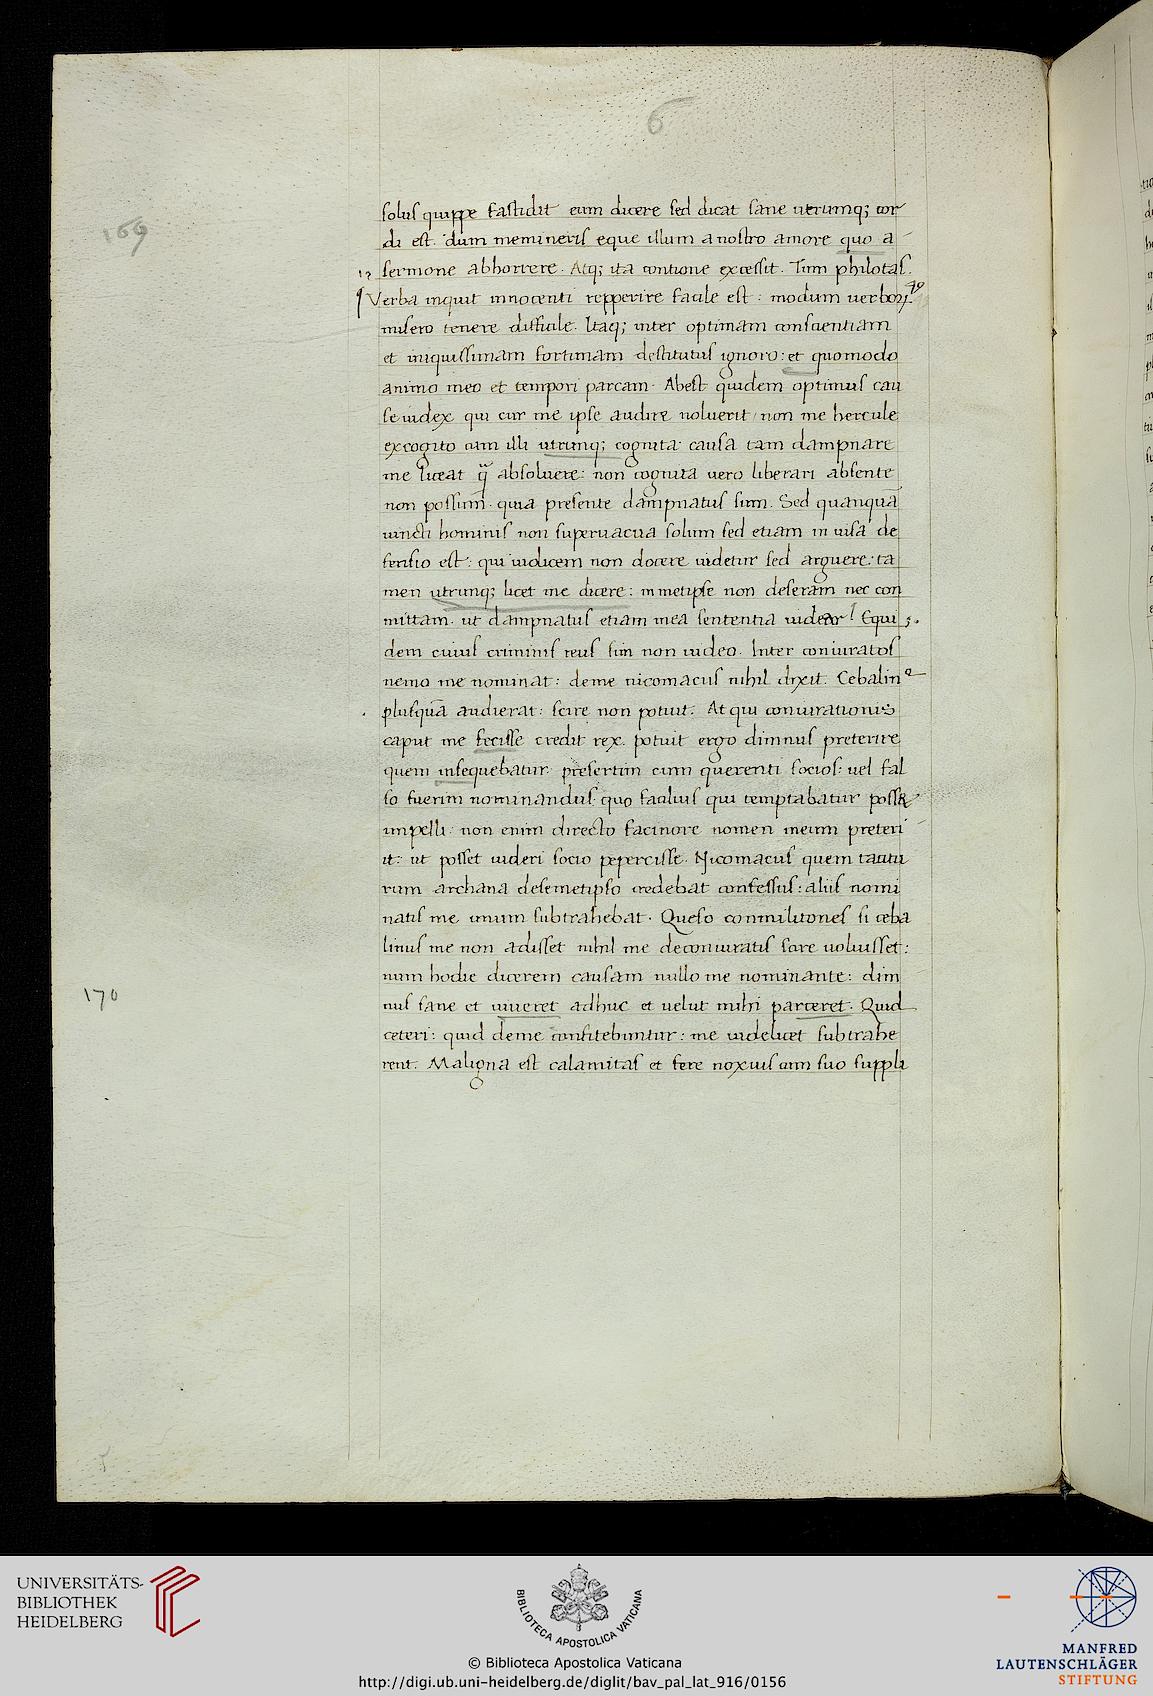 6
169
solus quippe fastidit eum dicere sed dicat sane utrumq; cor
di est. dum memineris eque illum a nostro amore quo a
sermone abhorrere. Atq; ita contione excessit. Tum philotas.
Verba inquit innocenti repperire facile est: modum verboꝝ
misero tenere difficile. Itaq; inter optimam conscientiam
et iniquissimam fortunam destitutus ignoro: et quomodo
animo meo et tempori parcam. Abest quidem optimus cau
se iudex qui cur me ipse audire noluerit non me hercule
excogito cum illi utrunq; cognita causa tam dampnare
me liceat q̃ absoluere: non cognita vero liberari absente
non possum. quia presente dampnatus sum. Sed quanquā
uincti hominis non superuacua solum sed etiam inuisa de
fensio est: qui iudicem non docere uidetur sed arguere: ta
men utrunq; licet me dicere: memetipse non deseram nec con
mittam. ut dampnatus etiam mea sententia uidear. Equi
dem cuius criminis reus sim non uideo. Inter coniuratos
nemo me nominat: deme nicomacus nihil dixit. Cebalin⁹
plusquā audierat: scire non potuit. Atqui coniurationis
caput me fecisse credit rex. potuit ergo dimnus preterire
quem insequebatur presertim cum querenti socios: uel fal
so fuerim nominandus. quo facilius qui temptabatur posset
impelli: non enim directo facinore nomen meum preteri
it: ut posset uideri socio pepercisse. Nicomacus quem tacitu
rum archana desemetipso credebat confessus: aliis nomi
natis me unum subtrahebat. Queso conmilitones si ceba
linus me non adisset nihil me deconiuratis scire uoluisset:
num hodie dicerem causam nullo me nominante: dim
170
nus sane et uiueret adhuc et uelut mihi parceret. Quid
ceteri: quid deme confitebuntur: me uidelicet subtrahe
rent. Maligna est calamitas et fere noxius cum suo suppli
UNIVERSITÄTS-
BIBLIOTHEK
HEIDELBERG
BIBLIOTECA APOSTOLICA VATICANA
MANFRED
LAUTENSCHLÄGER
STIFTUNG
© Biblioteca Apostolica Vaticana
http://digi.ub.uni-heidelberg.de/diglit/bav_pal_lat_916/0156